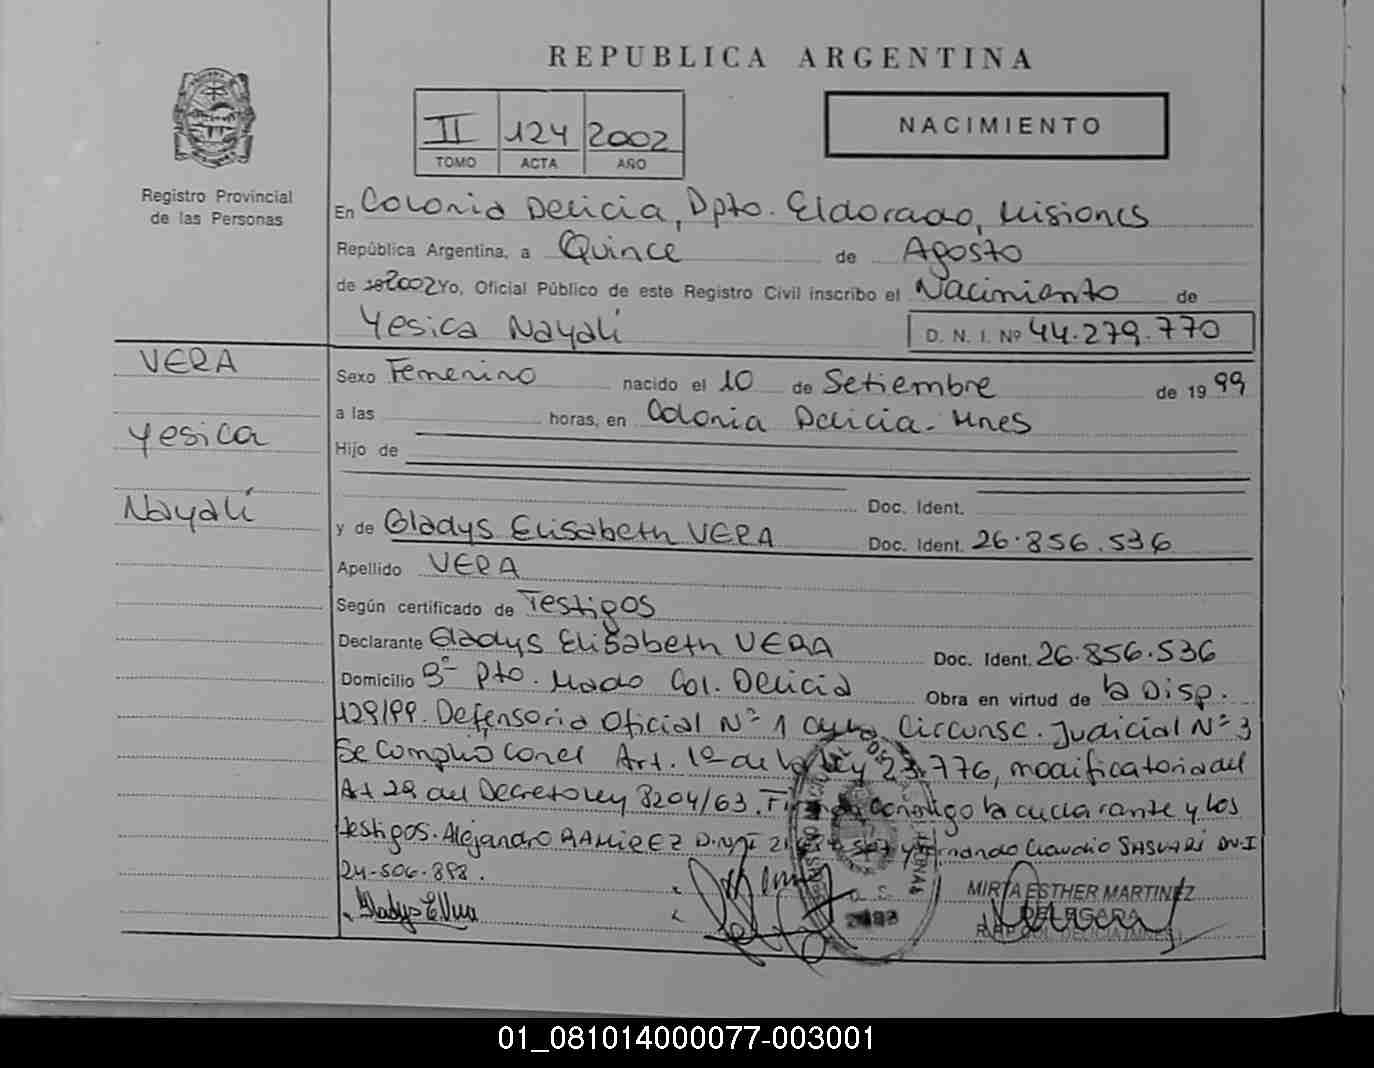 REPUBLICA ARGENTINA
II 124 2002
TOMO ACTA AÑO
NACIMIENTO
Registro Provincial
de las Personas
En Colonia Delicia, Dpto. Eldorado, Misiones
República Argentina, a Quince de Agosto
de 2002 Yo, Oficial Público de este Registro Civil inscribo el Nacimiento de
Yesica Nayalí D. N. I. Nº 44.279.770
VERA
Yesica
Nayalí
Sexo Femenino nacido el 10 de Setiembre de 19 99
a las horas, en Colonia Delicia - Mnes
Hijo de
Doc. Ident.
y de Gladys Elisabeth VERA Doc. Ident. 26.856.536
Apellido VERA
Según certificado de Testigos
Declarante Gladys Elisabeth VERA Doc. Ident. 26.856.536
Domicilio Bº Pto. Mado Col. Delicia Obra en virtud de la Disp.
129/99. Defensoria Oficial Nº 1 Circunsc. Judicial Nº 3
Se cumplio con el Art. 1º de la Ley 23.776, modificatoria del
Art 29 del Decreto ley 8204/63. conmigo la declarante y los
testigos. Alejandro RAMIREZ D.N.I y Claudio D.N.I
24-506-898.
Gladys E. Vera
MIRTA ESTHER MARTINEZ
DELEGADA
01_081014000077-003001